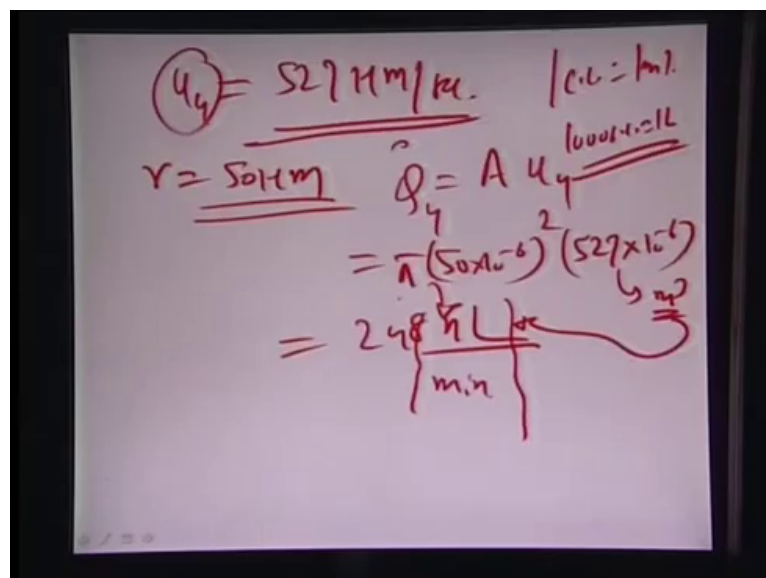 u₄ = 527 μm/sec.
1 c.c. = 1 ml.
1000 c.c. = 1L
r = 50 μm
Q₄ = A u₄
= π (50×10⁻⁶)² (527×10⁻⁶)
↳ m³
= 248 nL
min